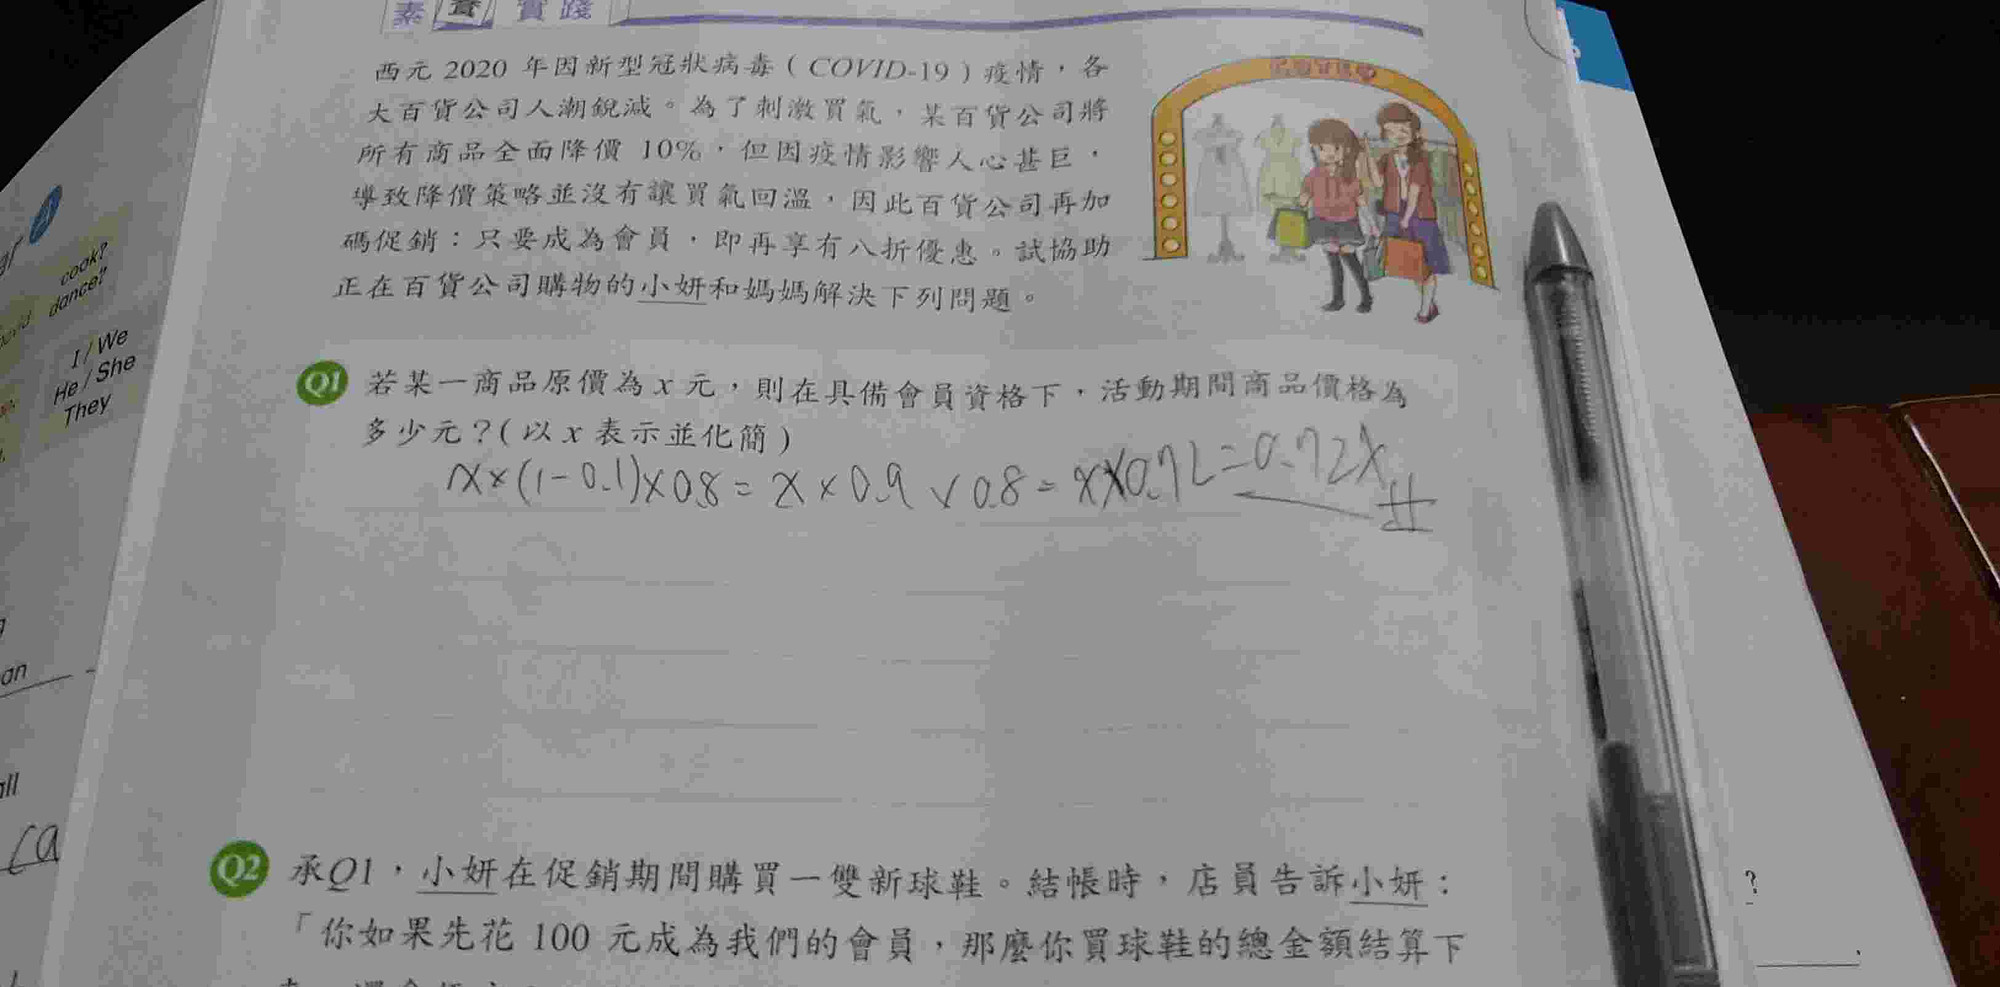 素養實踐
西元 2020 年因新型冠狀病毒（COVID-19）疫情，各
大百貨公司人潮銳減。為了刺激買氣，某百貨公司將
所有商品全面降價 10%，但因疫情影響人心甚巨，
導致降價策略並沒有讓買氣回溫，因此百貨公司再加
碼促銷：只要成為會員，即再享有八折優惠。試協助
正在百貨公司購物的小妍和媽媽解決下列問題。
Q1 若某一商品原價為 x 元，則在具備會員資格下，活動期間商品價格為
多少元？（以 x 表示並化簡）
x×(1-0.1)×0.8=x×0.9×0.8=x×0.72=0.72x #
Q2 承Q1，小妍在促銷期間購買一雙新球鞋。結帳時，店員告訴小妍：
「你如果先花 100 元成為我們的會員，那麼你買球鞋的總金額結算下
cook?
dance?
I / We
He / She
They
an
all
?